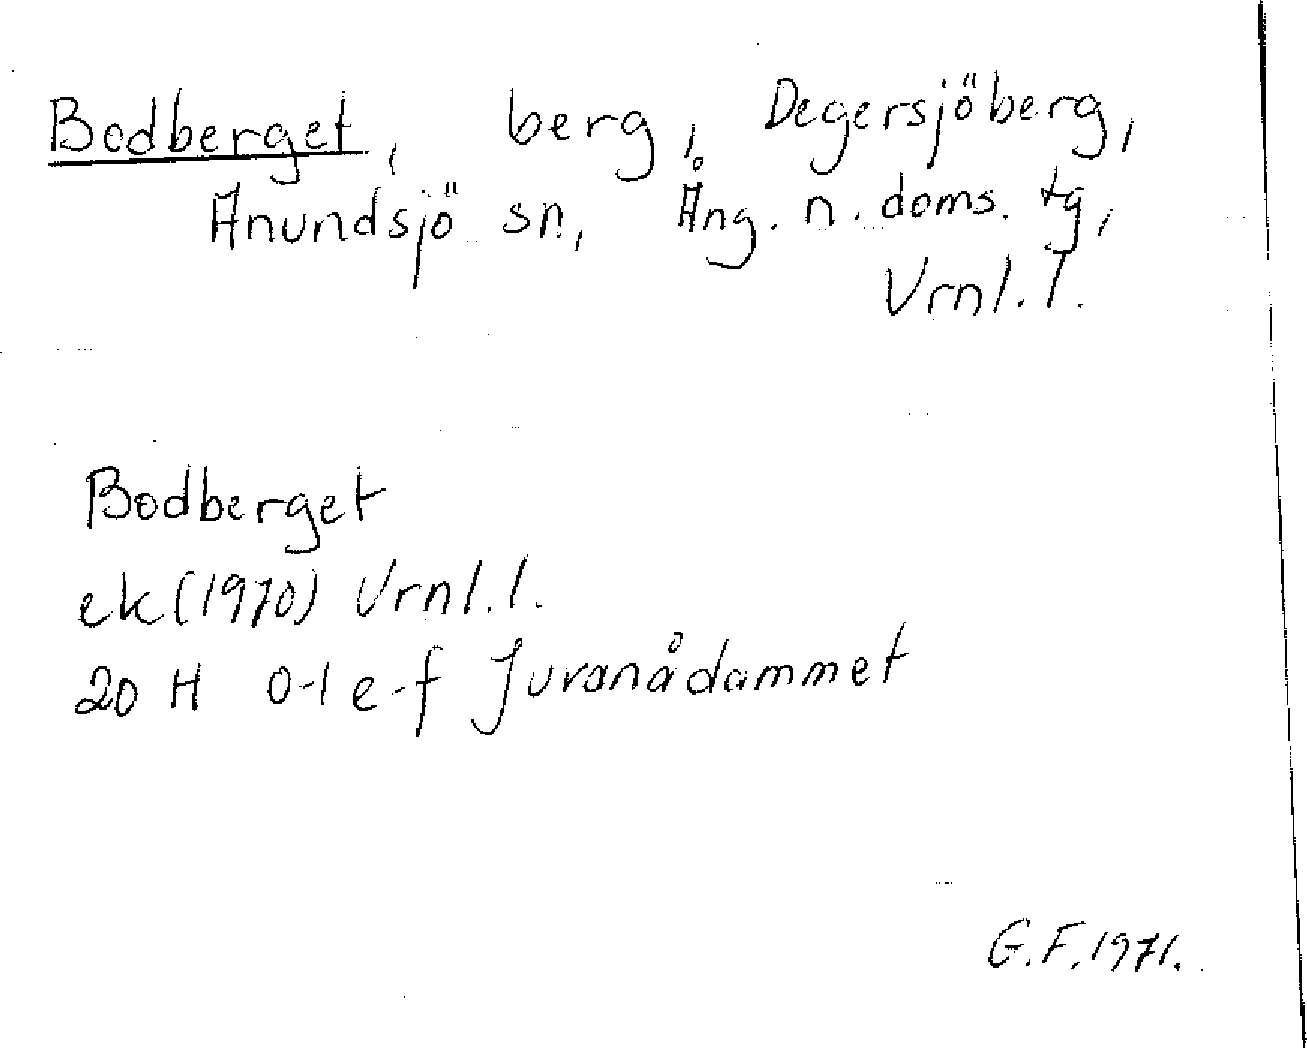 Bodberget, berg, Degersjöberg,
Anundsjö sn, Ång. n. doms. tg,
Vrnl. l.
Bodberget
ek (1970) Vrnl. l.
20 H 0-1 e-f Juvanådammet
G.F. 1971.